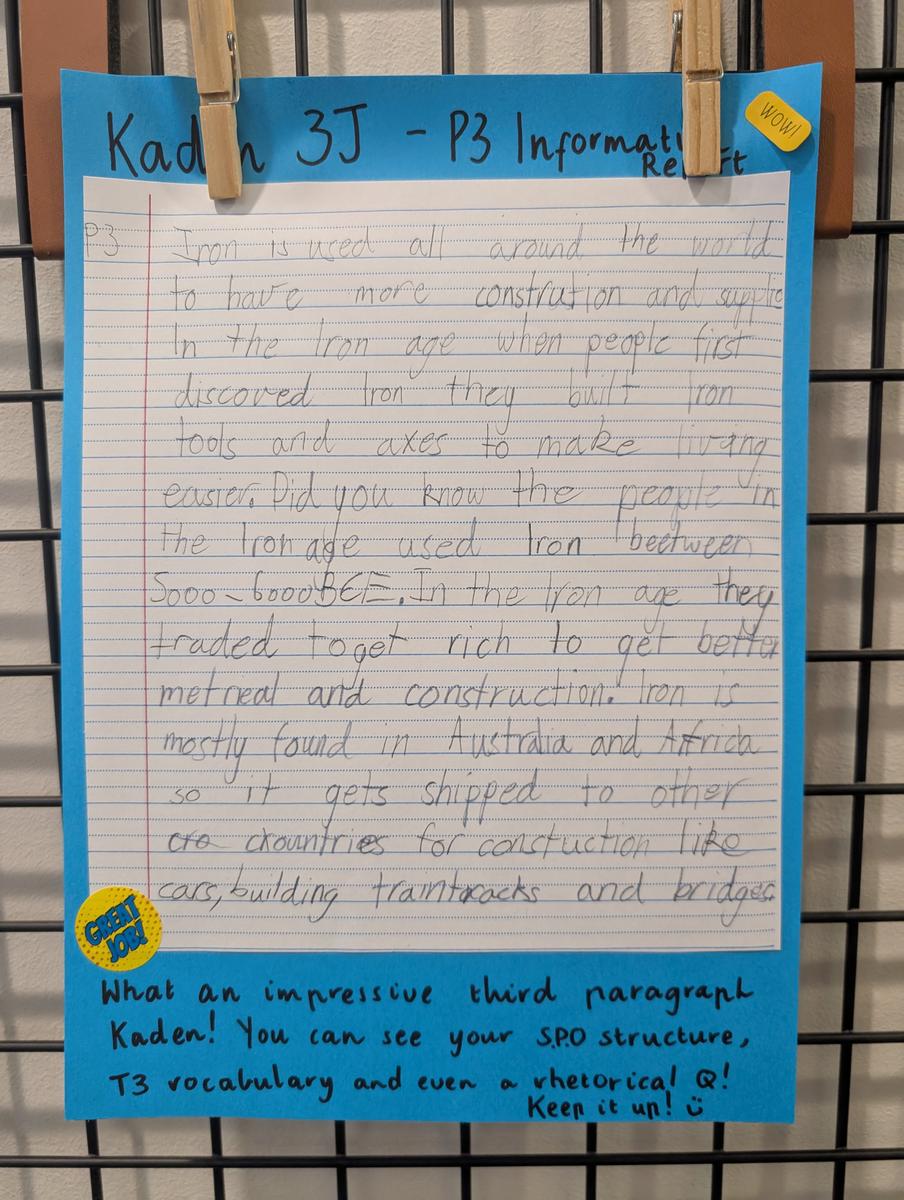 Kaden 3J - P3 Informati
Report
WOW!
P3 Iron is used all around the world
to have more constration and supplie
In the Iron age when people first
discoved Iron they built Iron
tools and axes to make livang
easier. Did you know the people in
the Iron age used Iron beetween
5000-6000BCE. In the Iron age they
traded to get rich to get better
metreal and construction. Iron is
mostly found in Australia and Africa
so it gets shipped to other
cro crountries for constuction like
cars, building traintracks and bridges.
GREAT
JOB!
What an impressive third paragraph
Kaden! You can see your S.P.O structure,
T3 vocabulary and even a rhetorical Q!
Keep it up! ü